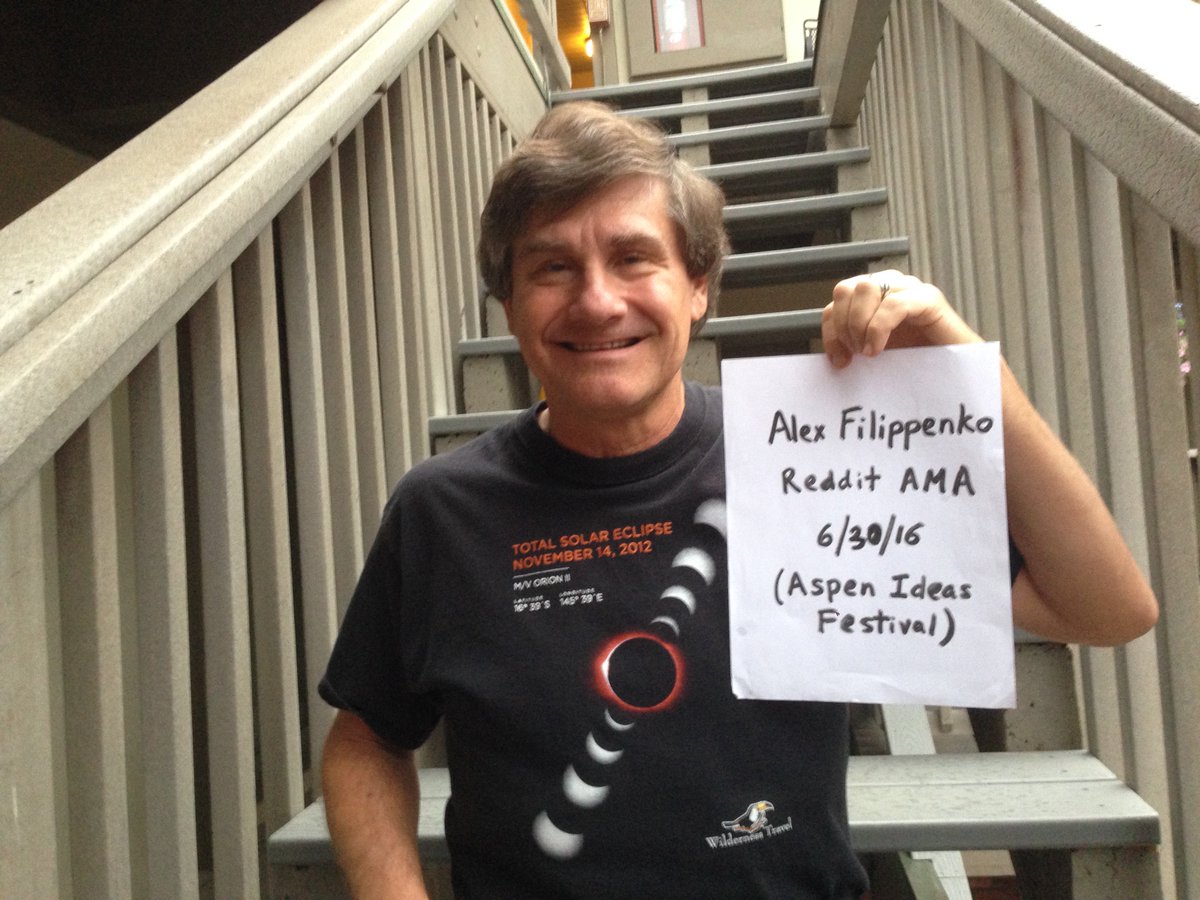 Alex Filippenko
Reddit AMA
6/30/16
(Aspen Ideas
Festival)
TOTAL SOLAR ECLIPSE
NOVEMBER 14, 2012
M/V ORION II
LATITUDE LONGITUDE
16° 39'S 145° 39'E
Wilderness Travel